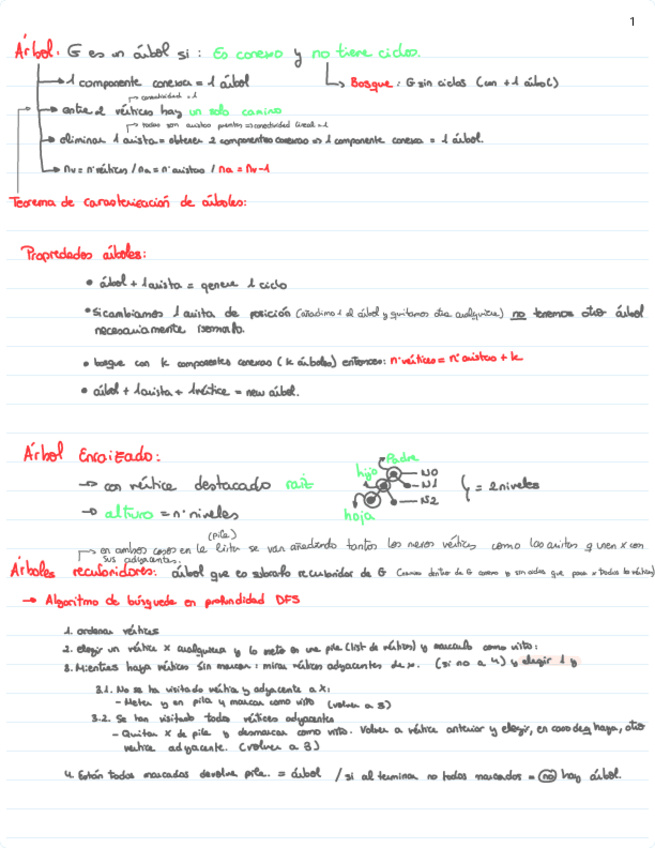 1
Árbol. G es un árbol si : Es conexo y no tiene ciclos.
1 componente conexa = 1 árbol
Bosque : G sin ciclos (un +1 árbol)
conectividad = 1
entre 2 vértices hay un solo camino
todas son aristas puentes => conectividad lineal = 1
eliminar 1 arista = obtener 2 componentes conexas => 1 componente conexa = 1 árbol.
nv = nº vértices / na = nº aristas / na = nv - 1
Teorema de caracterización de árboles:
Propiedades árboles:
• árbol + 1 arista = genera 1 ciclo
• Si cambiamos 1 arista de posición (añadimos 1 al árbol y quitamos otra cualquiera) no tenemos otro árbol
necesariamente isomorfo.
• bosque con k componentes conexas (k árboles) entonces: nº vértices = nº aristas + k
• árbol + 1 arista + 1 vértice = new árbol.
Árbol Enraizado:
Padre
hijo
N0
con vértice destacado raíz
N1
= 2 niveles
N2
altura = nº niveles
hoja
(pila)
en ambos casos en la lista se van añadiendo tantos los nuevos vértices como las aristas q unen x con
sus adyacentes.
Árboles recubridores: árbol que es subgrafo recubridor de G
→ Algoritmo de búsqueda en profundidad DFS
1. ordenar vértices
2. elegir un vértice x cualquiera y lo meto en una pila (list de vértices) y marcarlo como visto:
3. Mientras haya vértices sin marcar : mirar vértices adyacentes de x. (si no a 4) y elegir 1 y
3.1. No se ha visitado vértice y adyacente a x:
- Meter y en pila y marcar como visto (volver a 3)
3.2. Se han visitado todos vértices adyacentes
- Quitar x de pila y desmarcar como visto. Volver a vértice anterior y elegir, en caso de q haya, otro
vértice adyacente. (volver a 3)
4. Están todos marcados devolver pila. = árbol / si al terminar no todos marcados = no hay árbol.